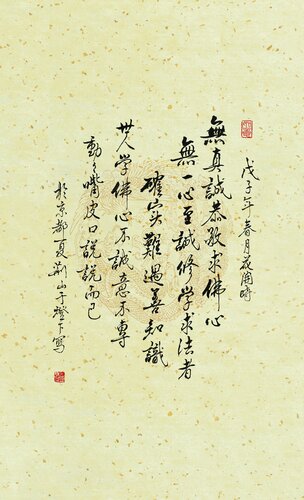 戊子年春月花開時
無真誠恭敬求佛心
無一心至誠修學求法者
確实難遇善知識
世人學佛心不誠意不專
動動嘴皮口説説而已
於京都夏荊山于燈下寫